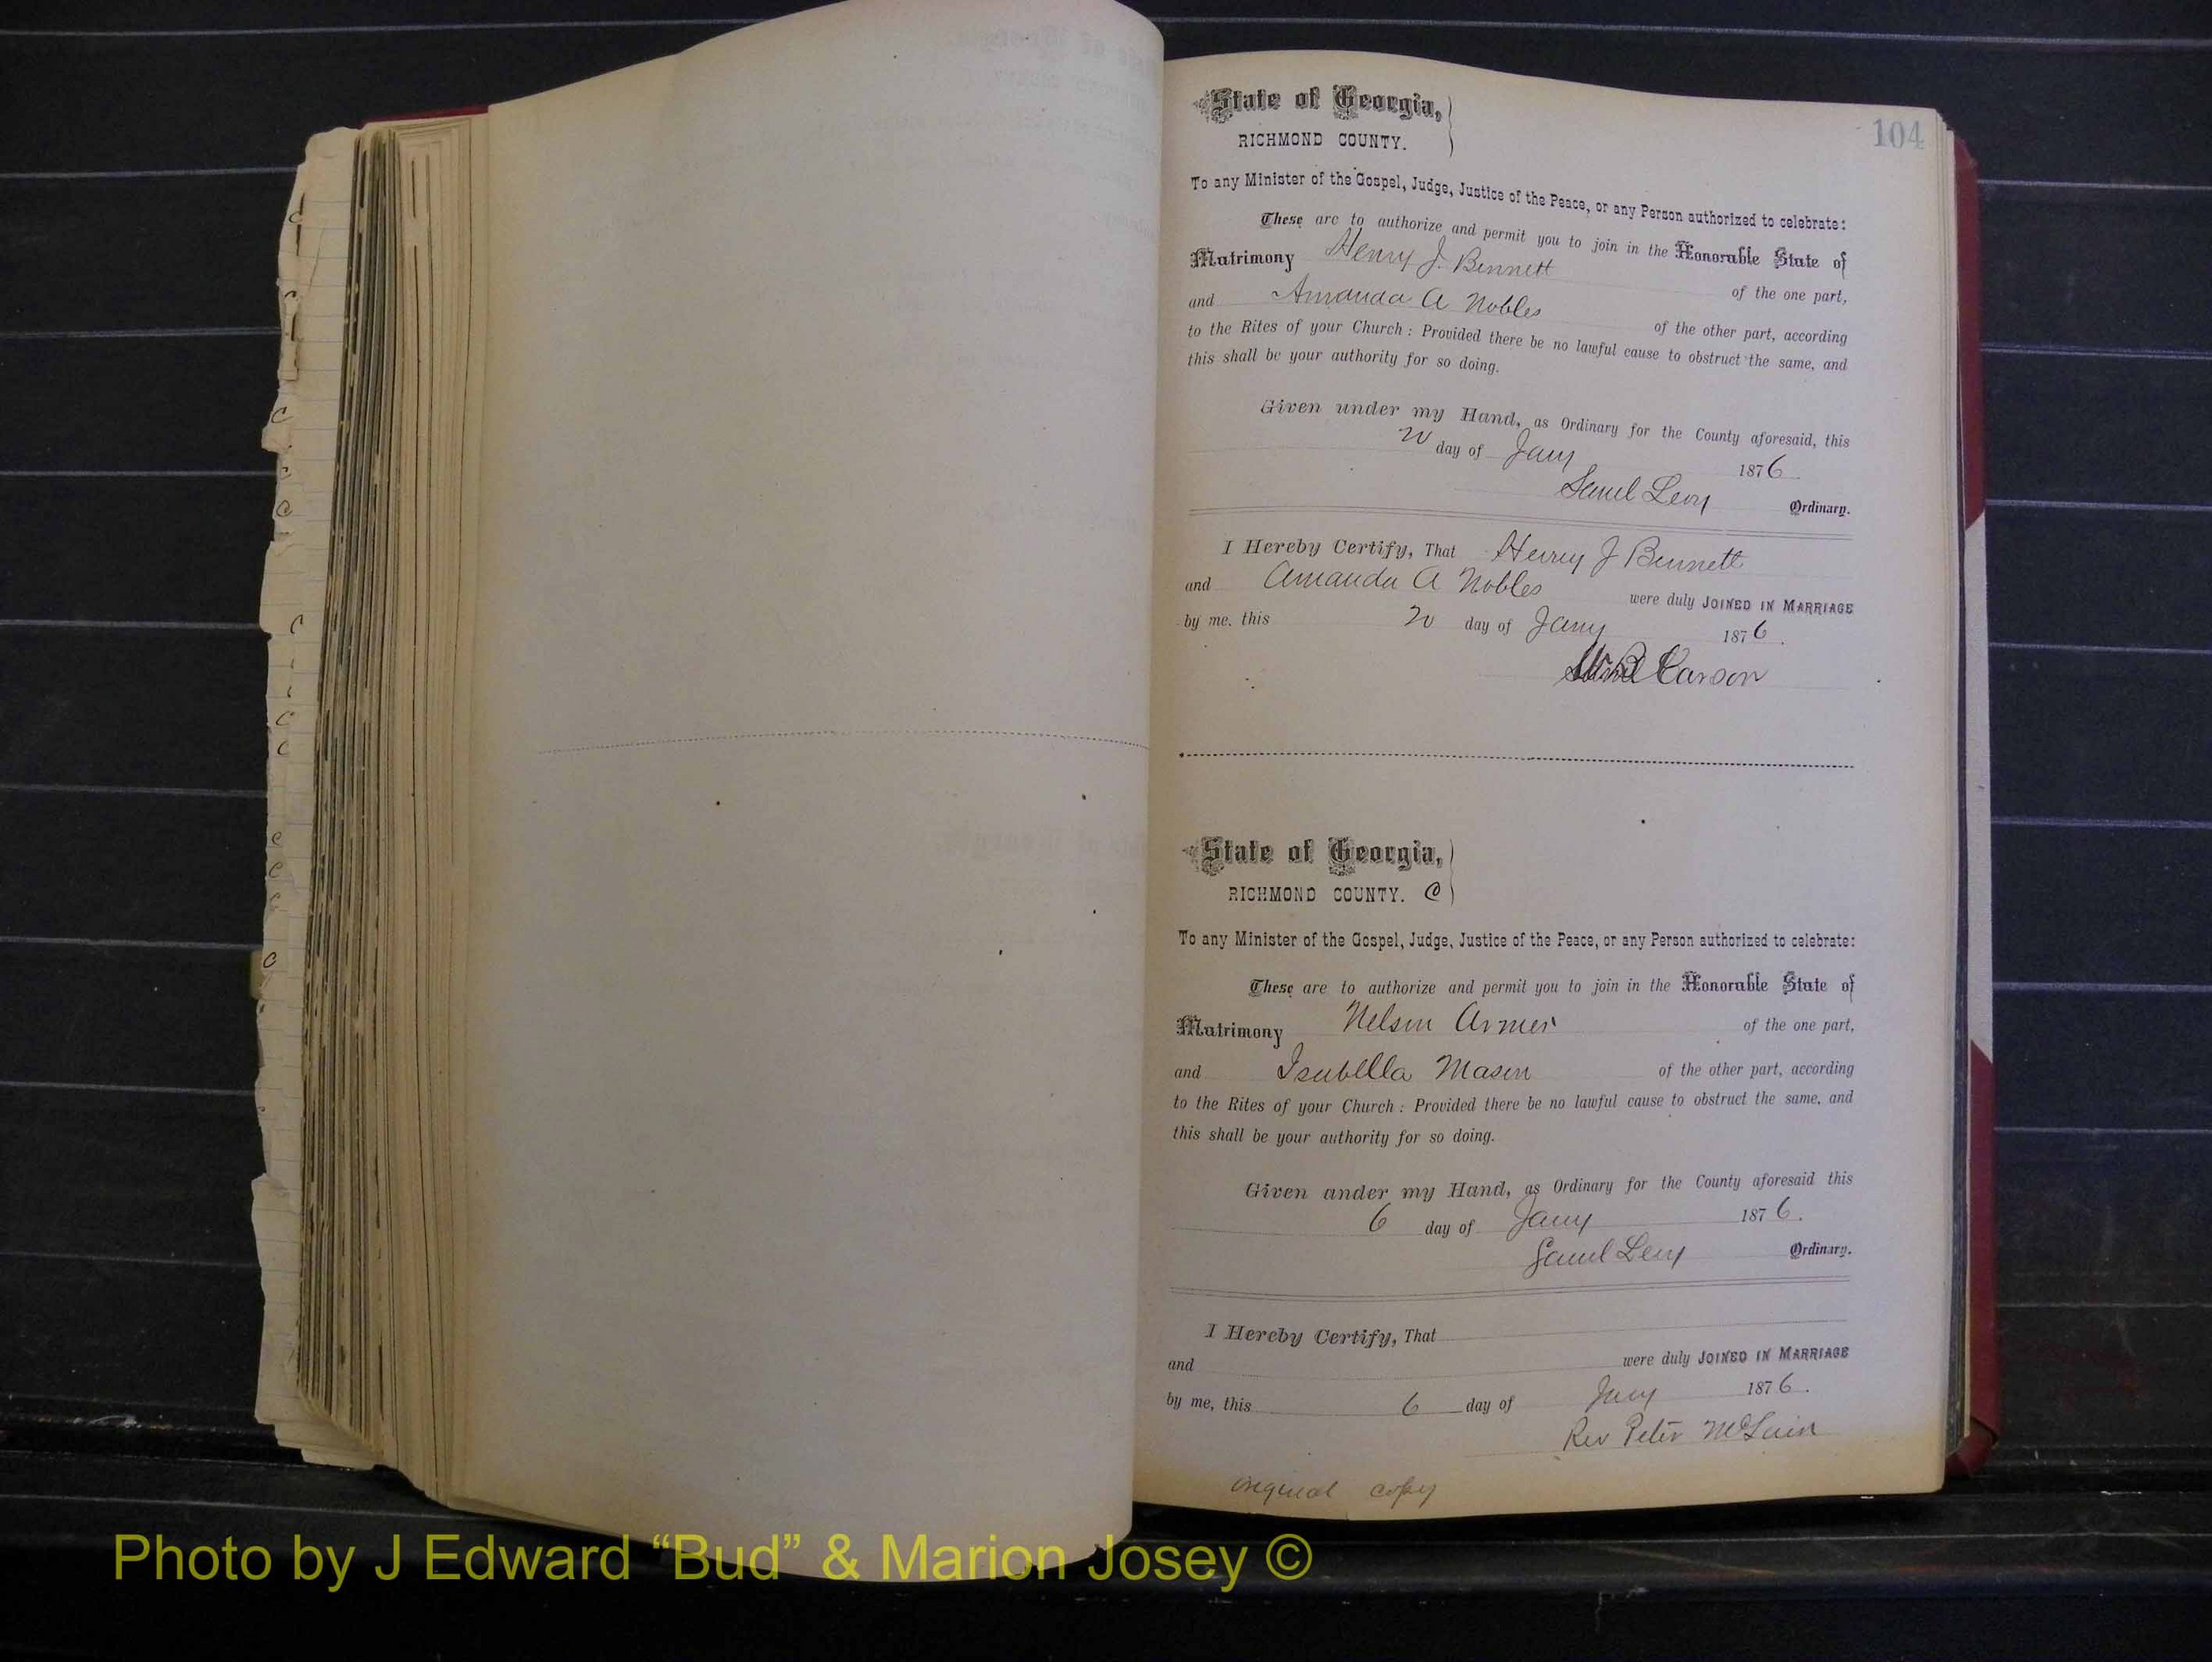 104
State of Georgia,
RICHMOND COUNTY.
To any Minister of the Gospel, Judge, Justice of the Peace, or any Person authorized to celebrate:
These are to authorize and permit you to join in the Honorable State of
Matrimony Henry J. Bennett of the one part,
and Amanda A Nobles of the other part, according
to the Rites of your Church: Provided there be no lawful cause to obstruct the same, and
this shall be your authority for so doing.
Given under my Hand, as Ordinary for the County aforesaid, this
20 day of Jany 1876
Saml Levy Ordinary.
I Hereby Certify, That Henry J Bennett
and Amanda A Nobles were duly JOINED IN MARRIAGE
by me, this 20 day of Jany 1876.
Carson
State of Georgia,
RICHMOND COUNTY. C
To any Minister of the Gospel, Judge, Justice of the Peace, or any Person authorized to celebrate:
These are to authorize and permit you to join in the Honorable State of
Matrimony Nelson Armer of the one part,
and Isabella Mason of the other part, according
to the Rites of your Church: Provided there be no lawful cause to obstruct the same, and
this shall be your authority for so doing.
Given under my Hand, as Ordinary for the County aforesaid this
6 day of Jany 1876.
Saml Levy Ordinary.
I Hereby Certify, That
and were duly JOINED IN MARRIAGE
by me, this 6 day of Jany 1876.
Rev Peter McLain
original copy
Photo by J Edward “Bud” & Marion Josey ©